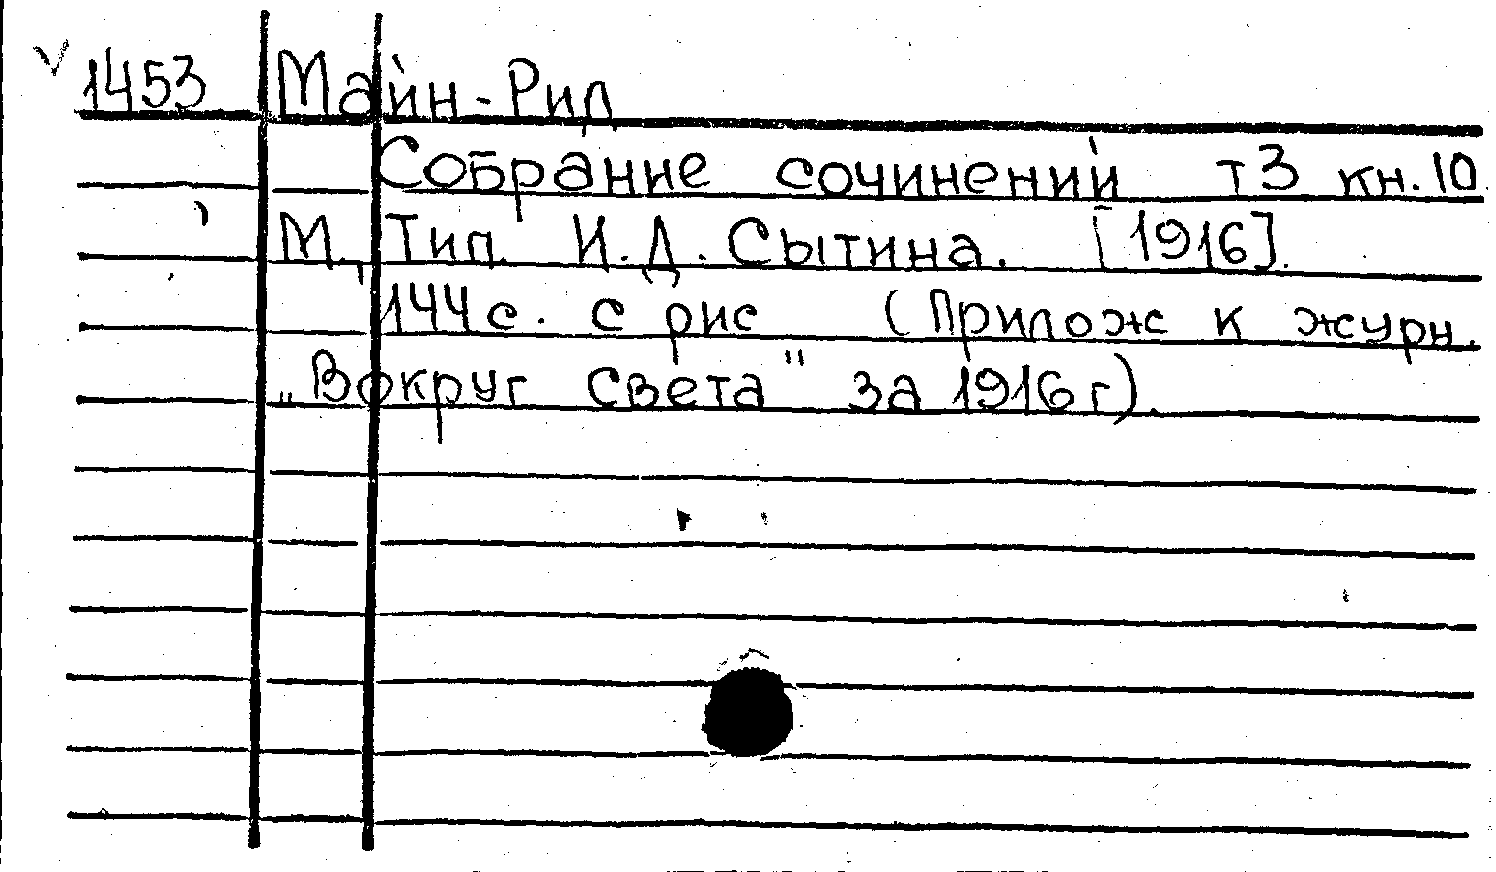 1453 Майн-Рид
Собрание сочинений т3 кн.10
М., Тип. И.Д. Сытина. [1916].
144с. с рис (Прилож к журн.
„Вокруг света" за 1916г).